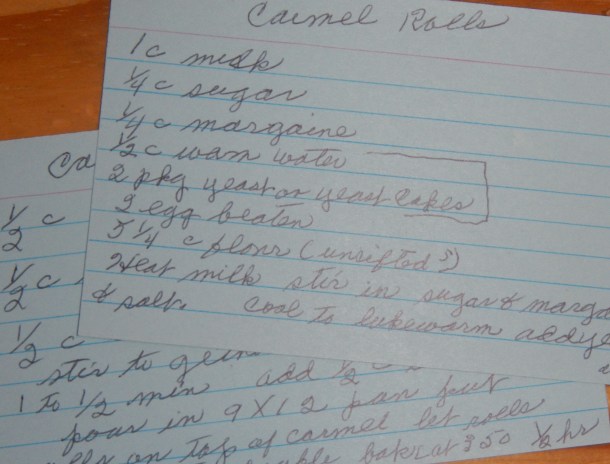 Carmel Rolls
1c milk
1/4 c sugar
1/4 c margaine
1/2 c warm water
2 pkg yeast or yeast Cakes
2 egg beaten
5 1/4 c flour (unsifted)
Heat milk stir in sugar & marga
& salt. Cool to lukewarm add ye
Ca
1/2 c
1/2 c
1/2 c
stir to
1 to 1/2 min add 1/2
pour in 9X12 pan put
on top of carmel let rolls
bake at 350 1/2 hr